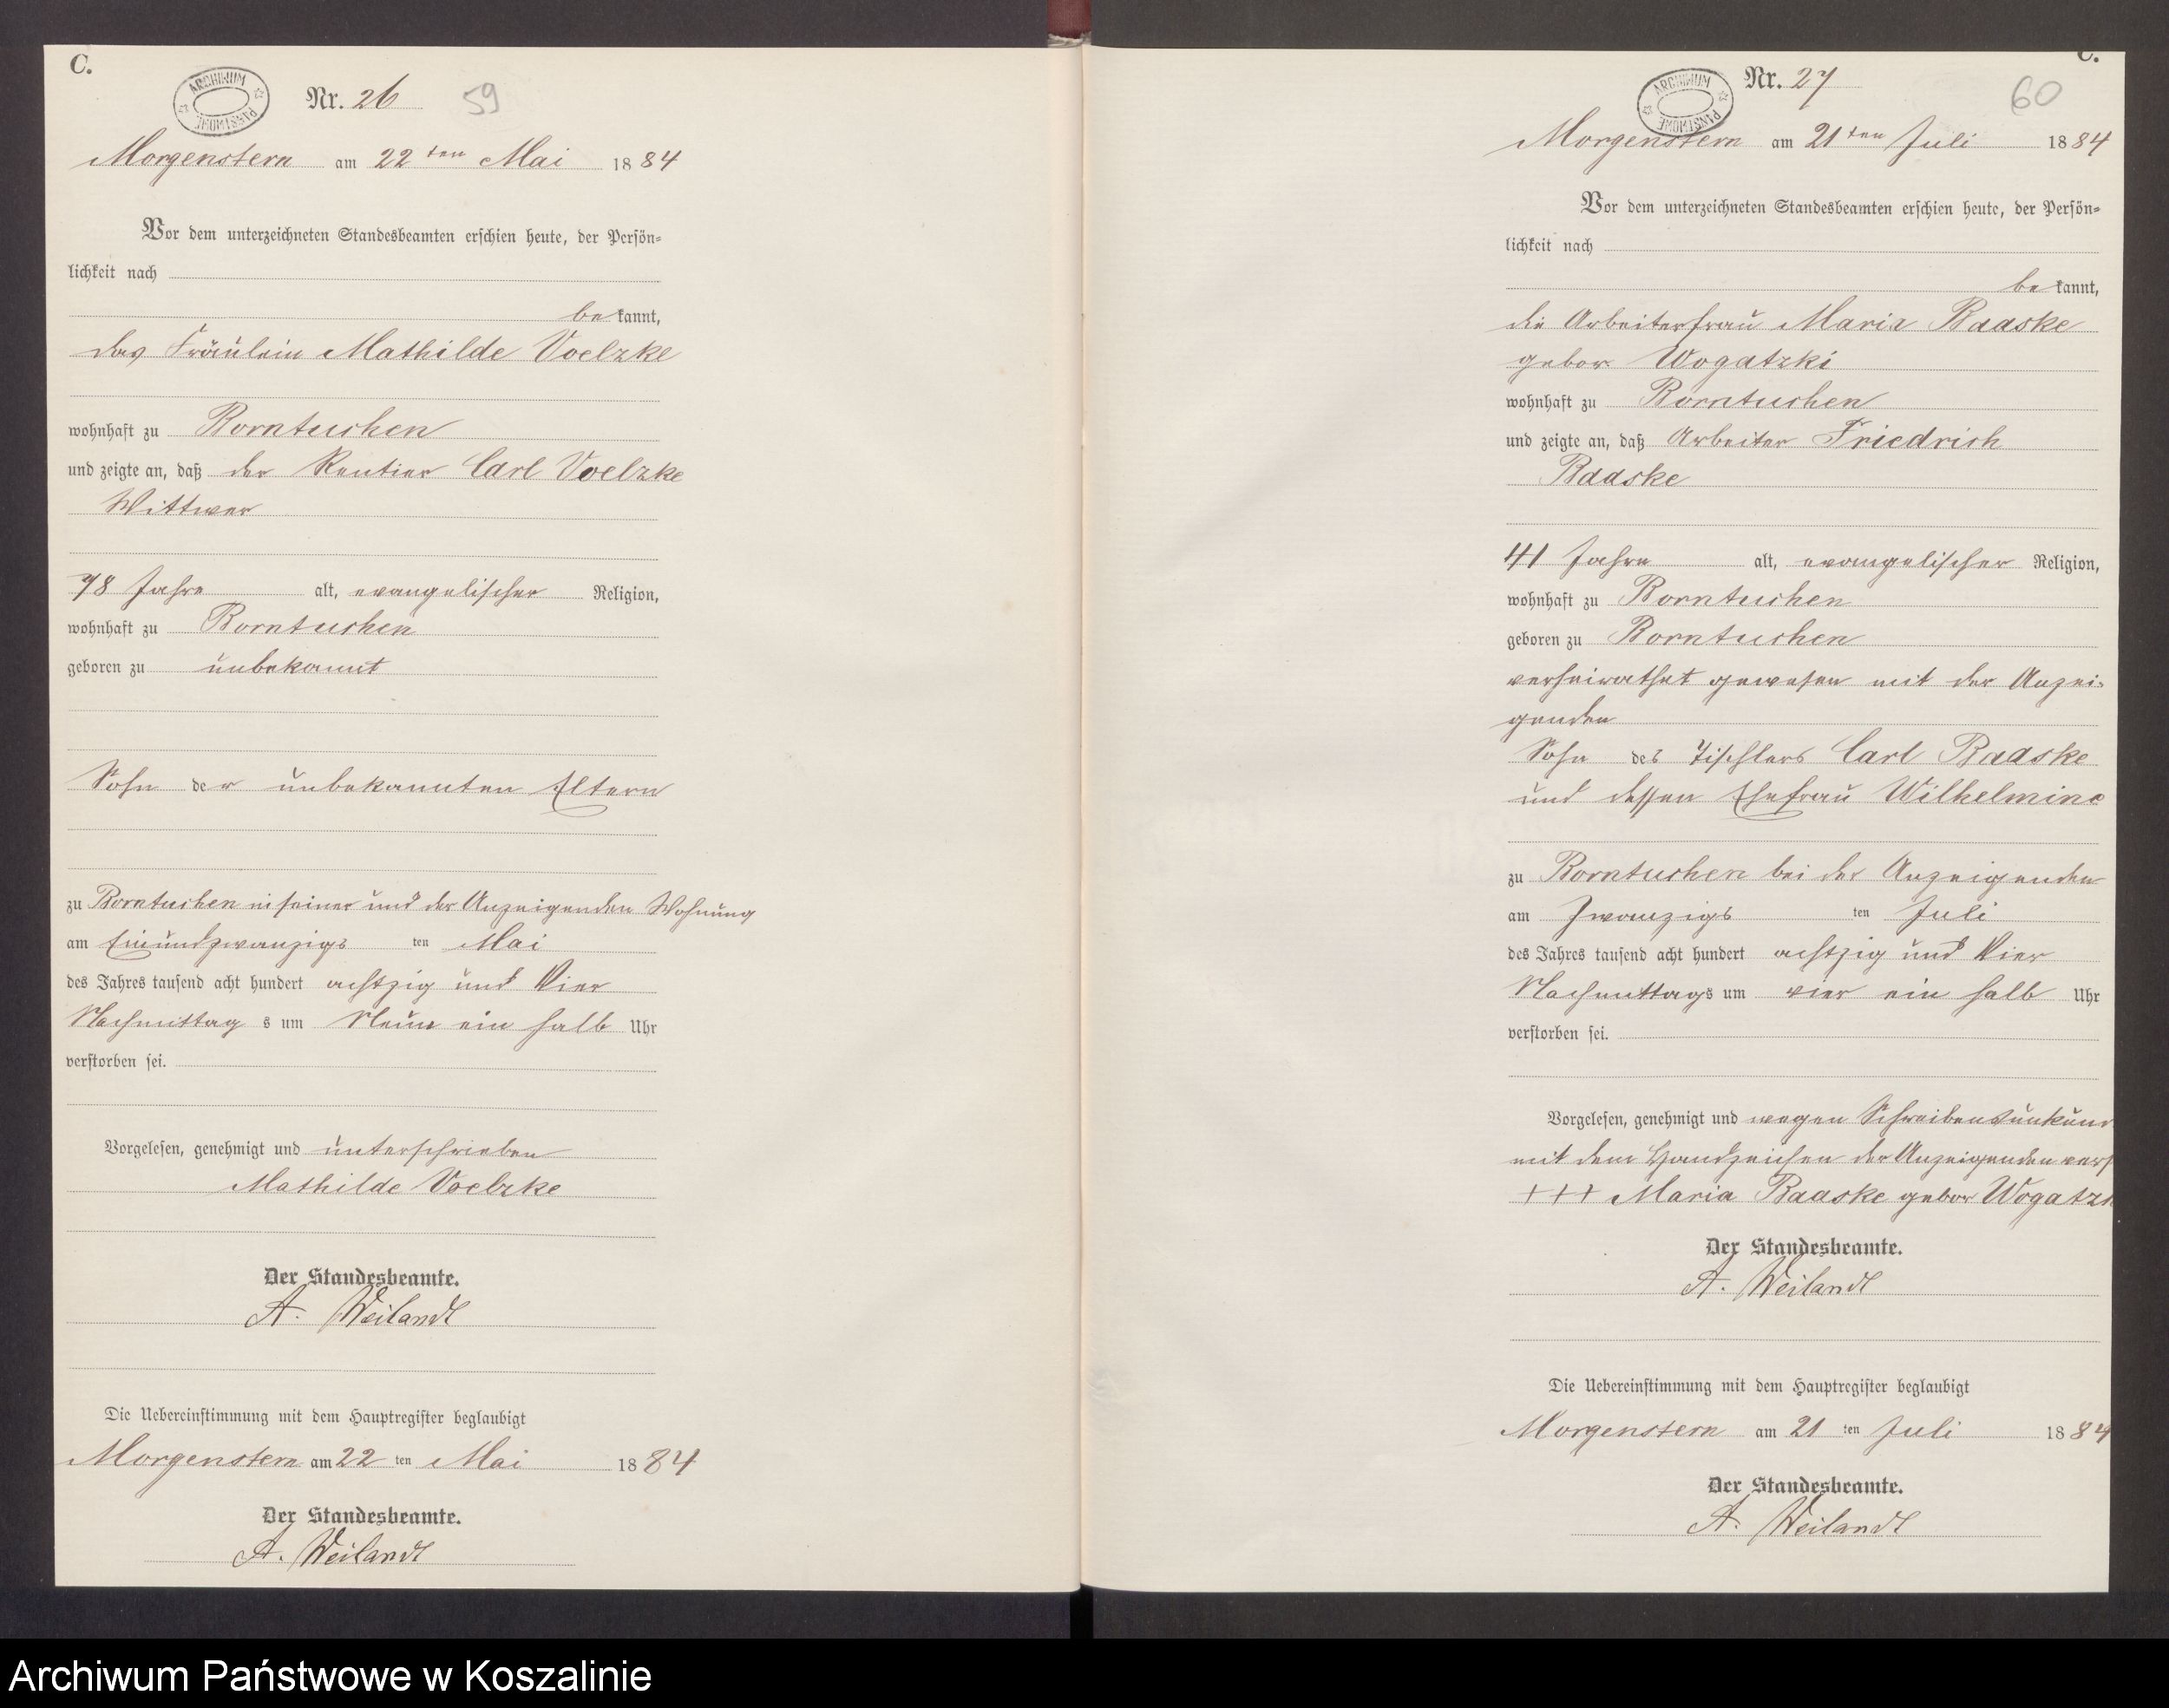 C.
ARCHIWUM PAŃSTWOWE
Nr. 26
59
Morgenstern am 22ten Mai 1884
Vor dem unterzeichneten Standesbeamten erschien heute, der Persön=
lichkeit nach
bekannt,
das Fräulein Mathilde Voelzke
wohnhaft zu Borntuchen
und zeigte an, daß der Rentier Carl Voelzke
Wittwer
78 Jahre alt, evangelischer Religion,
wohnhaft zu Borntuchen
geboren zu unbekannt
Sohn der unbekannten Eltern
zu Borntuchen in seiner und der Anzeigenden Wohnung
am Einundzwanzigs ten Mai
des Jahres tausend acht hundert achtzig und Vier
Nachmittags um Neun ein halb Uhr
verstorben sei.
Vorgelesen, genehmigt und unterschrieben
Mathilde Voelzke
Der Standesbeamte.
A. Weilandt
Die Uebereinstimmung mit dem Hauptregister beglaubigt
Morgenstern am 22 ten Mai 1884
Der Standesbeamte.
A. Weilandt
C.
ARCHIWUM PAŃSTWOWE
Nr. 27
60
Morgenstern am 21ten Juli 1884
Vor dem unterzeichneten Standesbeamten erschien heute, der Persön=
lichkeit nach
bekannt,
die Arbeiterfrau Maria Baaske
gebor. Wogatzki
wohnhaft zu Borntuchen
und zeigte an, daß Arbeiter Friedrich
Baaske
41 Jahre alt, evangelischer Religion,
wohnhaft zu Borntuchen
geboren zu Borntuchen
verheirathet gewesen mit der Anzei-
genden
Sohn des Tischlers Carl Baaske
und dessen Ehefrau Wilhelmine
zu Borntuchen bei der Anzeigenden
am Zwanzigs ten Juli
des Jahres tausend acht hundert achtzig und Vier
Nachmittags um vier ein halb Uhr
verstorben sei.
Vorgelesen, genehmigt und wegen Schreibensunkun
mit dem Handzeichen der Anzeigenden vers
+++ Maria Baaske gebor Wogatzk
Der Standesbeamte.
A. Weilandt
Die Uebereinstimmung mit dem Hauptregister beglaubigt
Morgenstern am 21 ten Juli 1884
Der Standesbeamte.
A. Weilandt
Archiwum Państwowe w Koszalinie